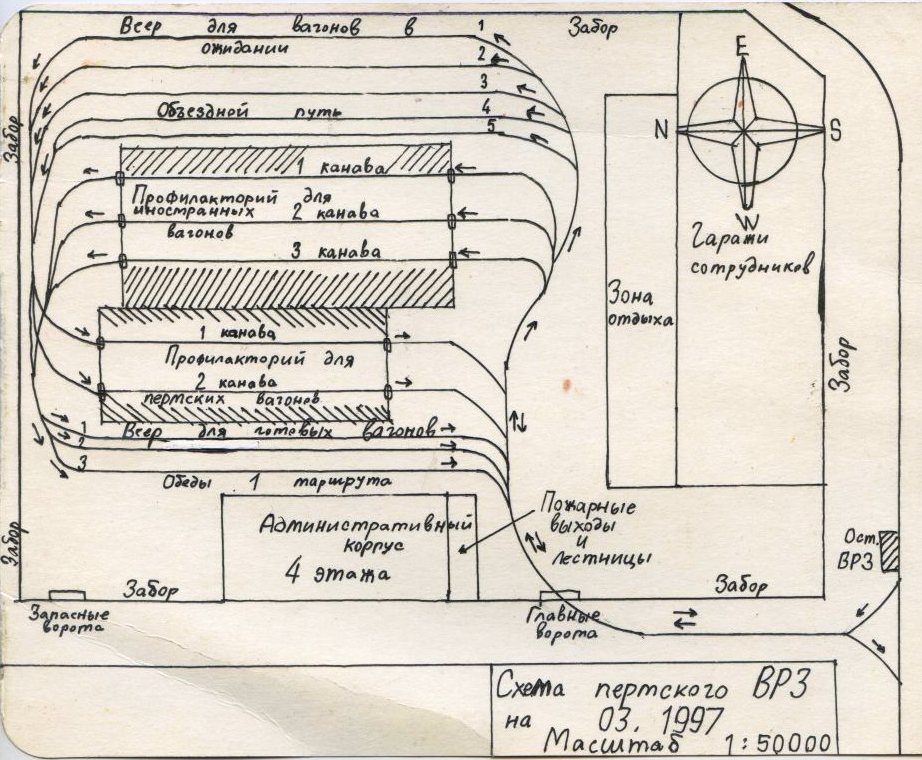 Веер для вагонов в 1
ожидании
2
3
Объездной путь 4
5
Забор
E
N
S
W
Забор
1 канава
Профилакторий для
иностранных 2 канава
вагонов
3 канава
Гаражи
сотрудников
Зона
отдыха
1 канава
Профилакторий для
2 канава
пермских вагонов
Забор
1 Веер для готовых вагонов
2
3
Обеды 1 маршрута
Пожарные
выходы
и
лестницы
Административный
корпус
4 этажа
Забор
Ост.
ВРЗ
Забор
Забор
Запасные
ворота
Главные
ворота
Схема пермского ВРЗ
на 03. 1997
Масштаб 1:50000